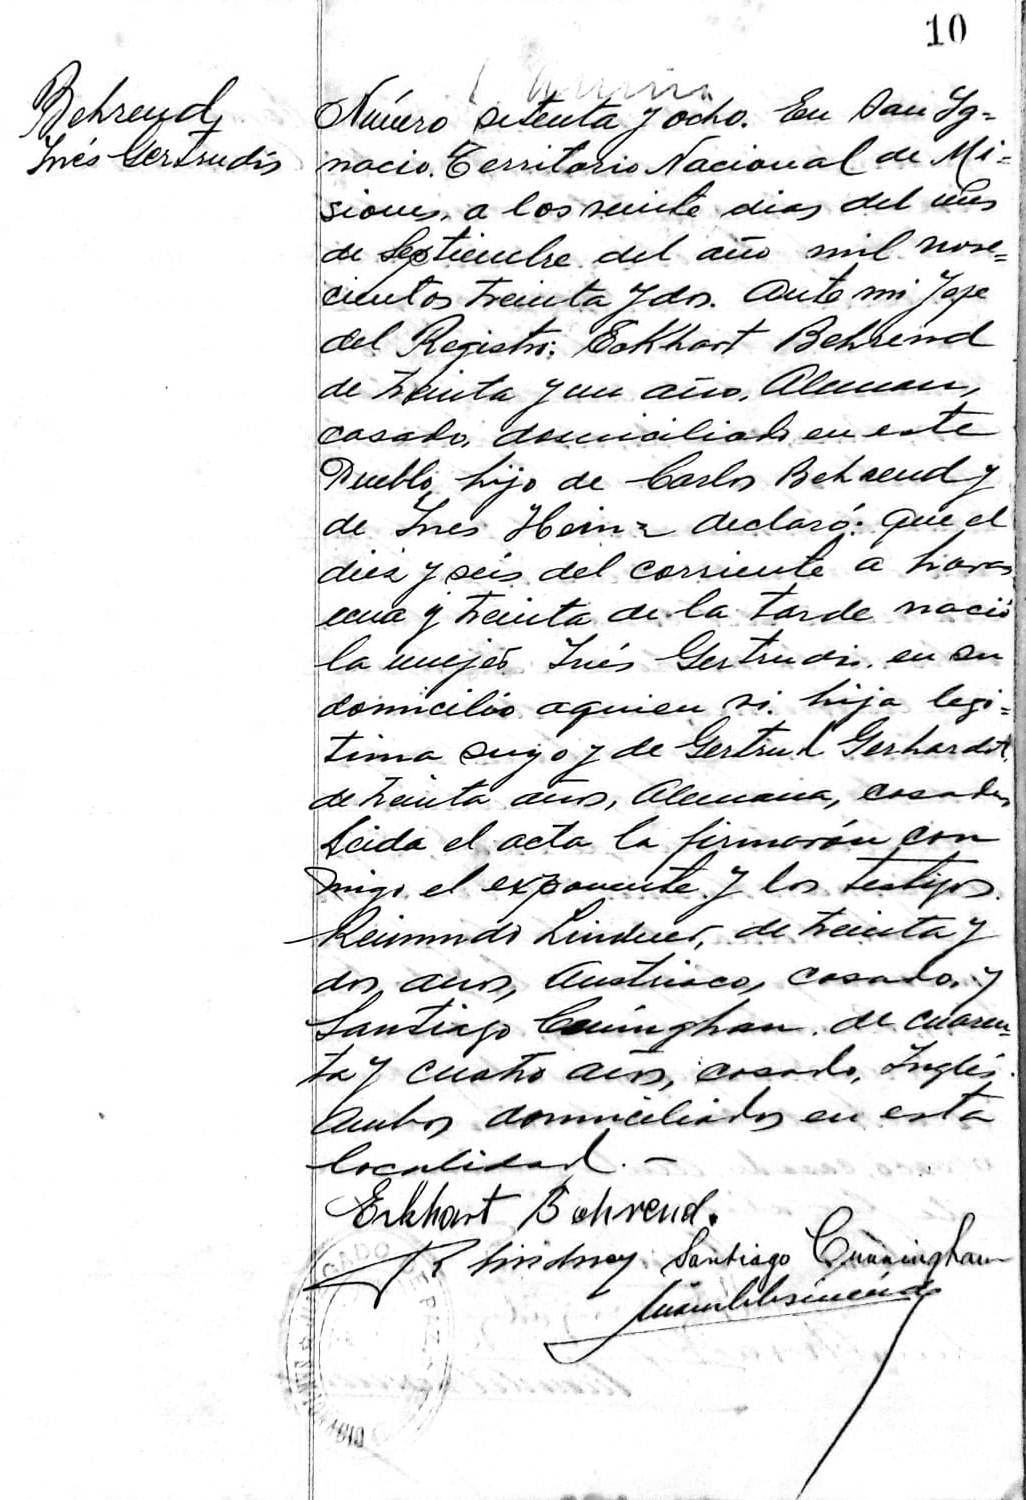 10
Behrend,
Inés Gertrudis
Número setenta y ocho. En San Ig=
nacio. Territorio Nacional de Mi=
siones, a los veinte dias del mes
de Septiembre del año mil nove=
cientos treinta y dos. Ante mi Jefe
del Registro: Eckhart Behrend
de treinta y un año, Aleman,
casado, domiciliado en este
Pueblo, hijo de Carlos Behrend y
de Ines Heinz declaró: Que el
diez y seis del corriente a horas
una y treinta de la tarde nació
la mujer Inés Gertrudis, en su
domicilio aquien vi. hija legi=
tima suya y de Gertrud Gerhardt,
de treinta años, Alemana, casada,
Leida el acta la firmarón con
migo el exponente y los testigos.
Reimundo Lindner, de treinta y
dos años, Austriaco, casado, y
Santiago Cuningham. de cuaren=
ta y cuatro años, casado, Inglés.
Ambos domiciliados en esta
localidad. —
Eckhart Behrend.
R Lindner Santiago Cunningham